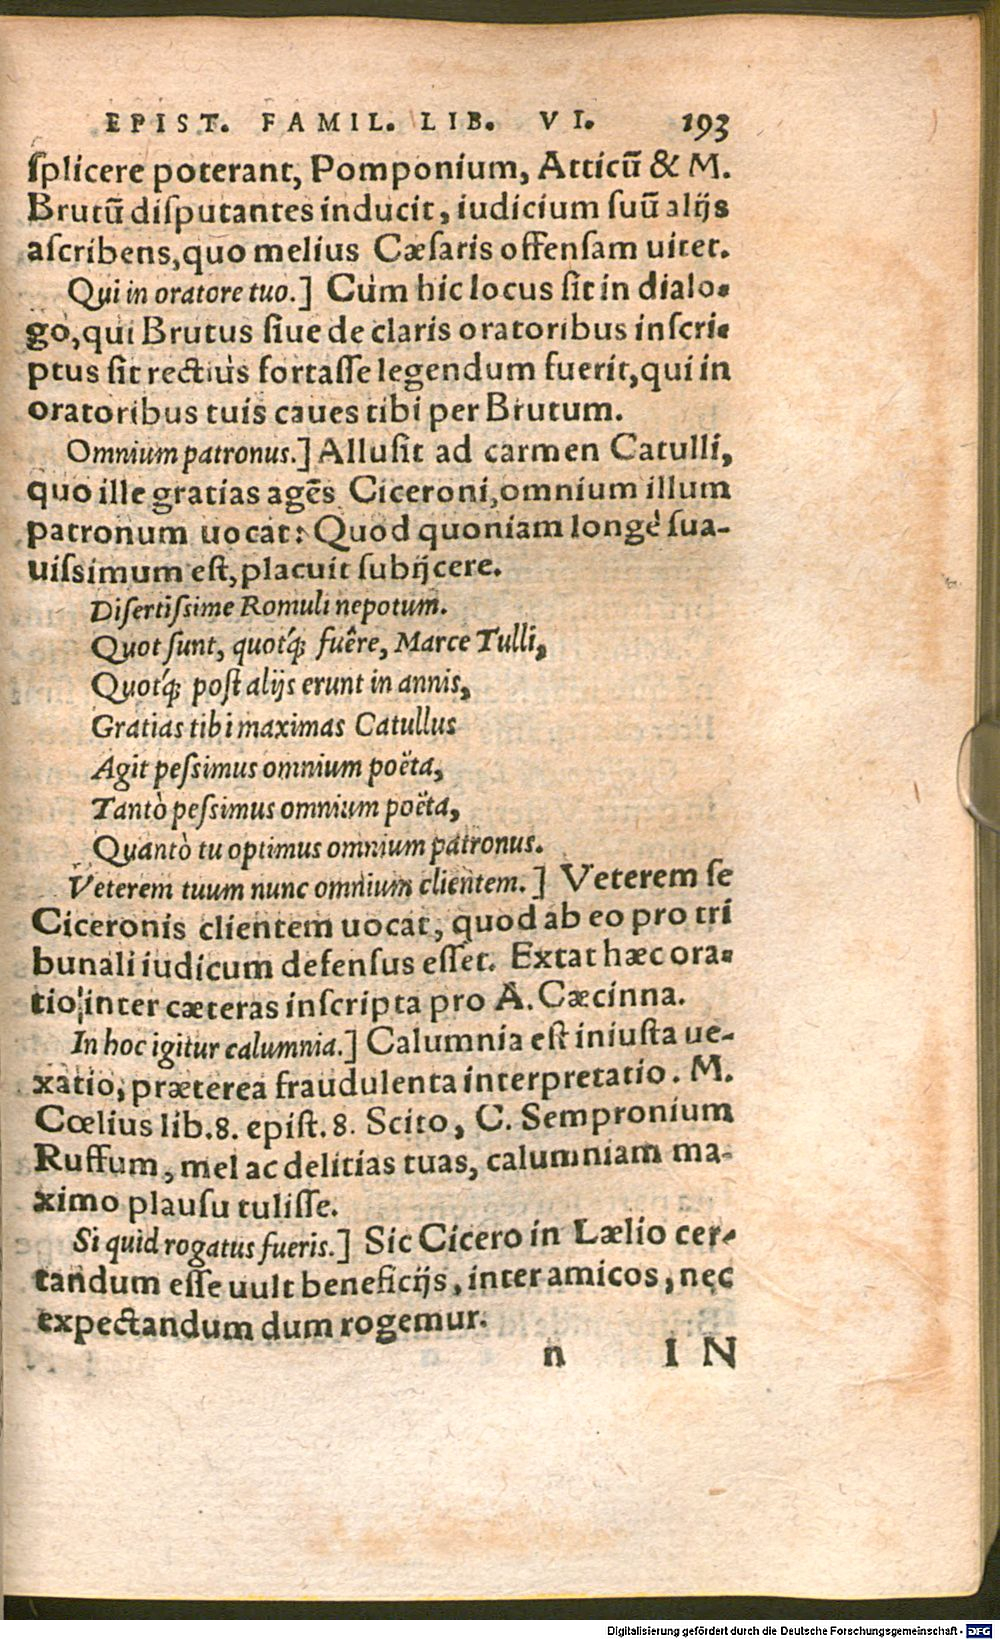 EPIST. FAMIL. LIB. VI. 193
ſplicere poterant, Pomponium, Atticũ & M.
Brutũ diſputantes inducit, iudicium ſuũ alijs
aſcribens, quo melius Cæſaris offenſam uitet.
Qui in oratore tuo.] Cùm hic locus ſit in dialo-
go, qui Brutus ſiue de claris oratoribus inſcri-
ptus ſit rectiùs fortaſſe legendum fuerit, qui in
oratoribus tuis caues tibi per Brutum.
Omnium patronus.] Alluſit ad carmen Catulli,
quo ille gratias agẽs Ciceroni, omnium illum
patronum uocat: Quod quoniam longè ſua-
uiſsimum eſt, placuit ſubijcere.
Diſertiſsime Romuli nepotum.
Quot ſunt, quotq́; fuêre, Marce Tulli,
Quotq́; poſt alijs erunt in annis,
Gratias tibi maximas Catullus
Agit peſsimus omnium poëta,
Tantò peſsimus omnium poëta,
Quantò tu optimus omnium patronus.
Veterem tuum nunc omnium clientem.] Veterem ſe
Ciceronis clientem uocat, quod ab eo pro tri
bunali iudicum defenſus eſſet. Extat hæc ora-
tio inter cæteras inſcripta pro A. Cæcinna.
In hoc igitur calumnia.] Calumnia eſt iniuſta ue-
xatio, præterea fraudulenta interpretatio. M.
Cœlius lib. 8. epiſt. 8. Scito, C. Sempronium
Ruffum, mel ac delitias tuas, calumniam ma-
ximo plauſu tuliſſe.
Si quid rogatus fueris.] Sic Cicero in Lælio cer-
tandum eſſe uult beneficijs, inter amicos, nec
expectandum dum rogemur.
n IN
Digitalisierung gefördert durch die Deutsche Forschungsgemeinschaft - DFG